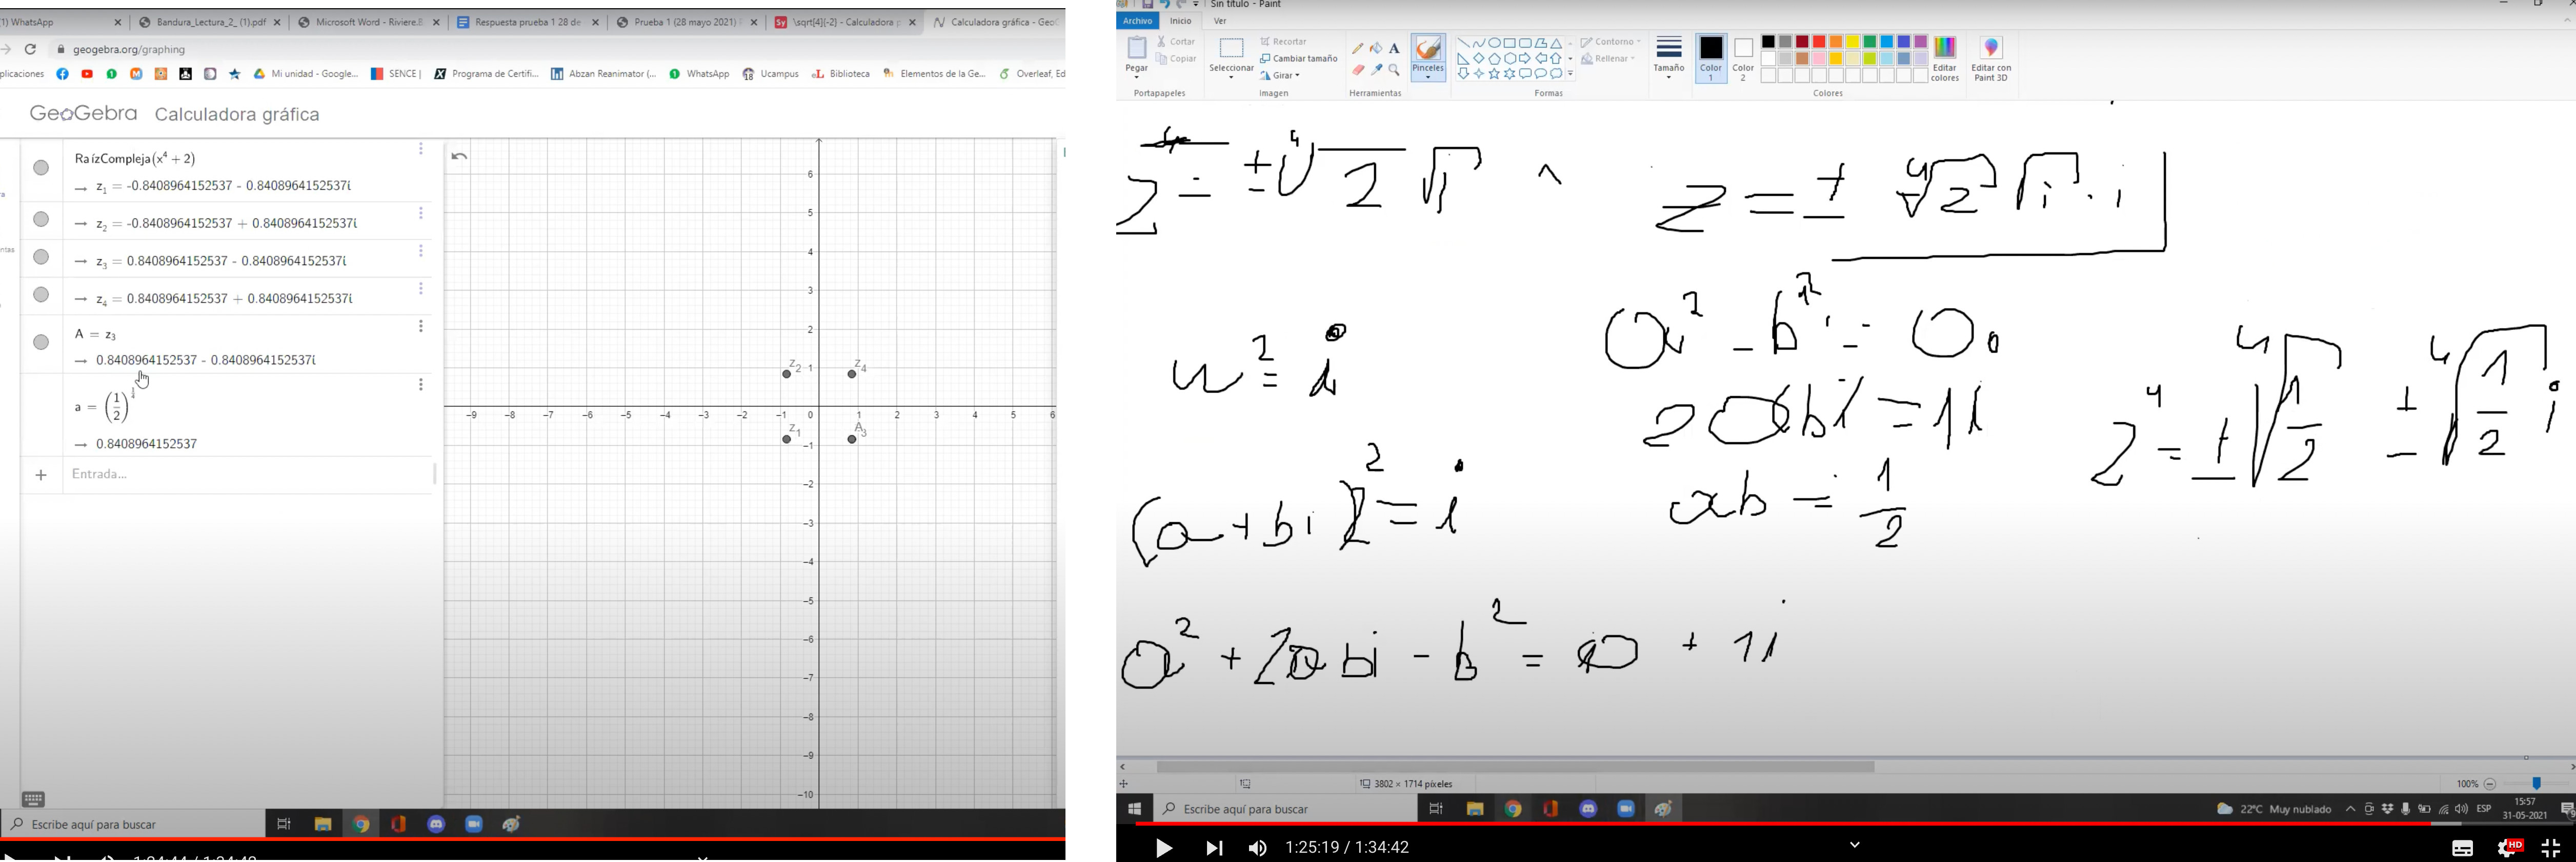 1) WhatsApp
Bandura_Lectura_2_ (1).pdf
Microsoft Word - Riviere.8
Respuesta prueba 1 28 de
Prueba 1 (28 mayo 2021)
Sy \sqrt[4]{-2} - Calculadora p
Calculadora gráfica - GeoG
geogebra.org/graphing
plicaciones
Mi unidad - Google...
SENCE |
Programa de Certifi...
Abzan Reanimator (...
WhatsApp
Ucampus
Biblioteca
Elementos de la Ge...
Overleaf, Ed
GeoGebra Calculadora gráfica
RaízCompleja(x⁴ + 2)
→ z₁ = -0.8408964152537 - 0.8408964152537i
→ z₂ = -0.8408964152537 + 0.8408964152537i
→ z₃ = 0.8408964152537 - 0.8408964152537i
→ z₄ = 0.8408964152537 + 0.8408964152537i
A = z₃
→ 0.8408964152537 - 0.8408964152537i
a = (1/2)^(1/4)
→ 0.8408964152537
+ Entrada...
6
5
4
3
2
z₂ 1 z₄
−9 −8 −7 −6 −5 −4 −3 −2 −1 0 1 2 3 4 5 6
z₁ −1 A₃
−2
−3
−4
−5
−6
−7
−8
−9
−10
Escribe aquí para buscar
Sin título - Paint
Archivo Inicio Ver
Pegar
Cortar
Copiar
Portapapeles
Seleccionar
Recortar
Cambiar tamaño
Girar
Imagen
Herramientas
Pinceles
Contorno
Rellenar
Formas
Tamaño
Color 1
Color 2
Editar colores
Editar con Paint 3D
Colores
z = ± ⁴√2 √i ^ z = ± ⁴√2 √i · i
u² = i
(a + bi)² = i
a² + 2abi − b² = 0 + 1i
a² − b² = 0
2abi = 1i
ab = 1/2
z⁴ = ± ⁴√(1/2) ± ⁴√(1/2) i
3802 × 1714 píxeles
100%
Escribe aquí para buscar
22°C Muy nublado
ESP
15:57
31-05-2021
1:25:19 / 1:34:42
HD